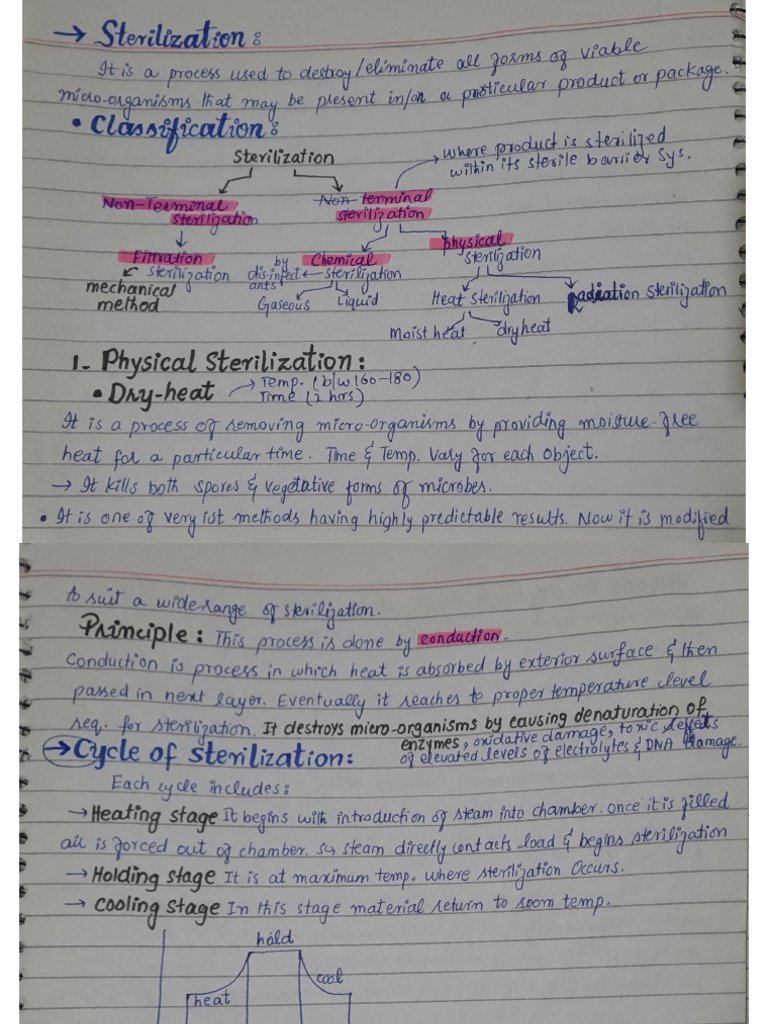 → Sterilization:
It is a process used to destroy/eliminate all forms of viable
micro-organisms that may be present in/on a particular product or package.
• Classification:
Sterilization
→ where product is sterilized
within its sterile barrier sys.
Non-Terminal
sterilization
Non- terminal
sterilization
Filtration
sterilization
mechanical
method
by
disinfect
ants
Chemical
sterilization
physical
sterilization
Gaseous
Liquid
Heat sterilization
radiation sterilization
Moist heat
dry heat
1- Physical Sterilization:
• Dry-heat → Temp. (b/w 160-180)
Time (2 hrs)
It is a process of removing micro-organisms by providing moisture-free
heat for a particular time. Time & Temp. vary for each object.
→ It kills both spores & vegetative forms of microbes.
• It is one of very ist methods having highly predictable results. Now it is modified
to suit a wide range of sterilization.
Principle: This process is done by conduction.
Conduction is process in which heat is absorbed by exterior surface & then
passed in next layer. Eventually it reaches to proper temperature level
req. for sterilization. It destroys micro-organisms by causing denaturation of
enzymes, oxidative damage, toxic effects
of elevated levels of electrolytes & DNA damage.
→ Cycle of sterilization:
Each cycle includes:
→ Heating stage It begins with introduction of steam into chamber. once it is filled
air is forced out of chamber. so steam directly contacts load & begins sterilization
→ Holding stage It is at maximum temp. where sterilization occurs.
→ cooling stage In this stage material return to room temp.
hold
heat
cool